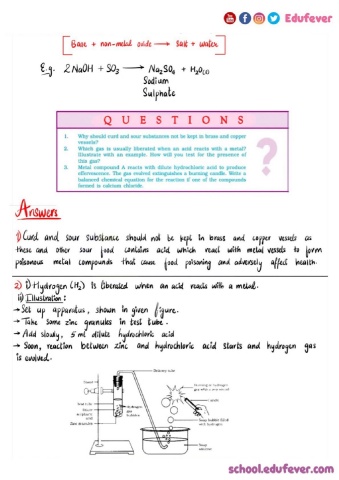 Edufever
Base + non-metal oxide → Salt + water
E.g. 2NaOH + SO3 → Na2SO4 + H2O(l)
Sodium
Sulphate
QUESTIONS
1. Why should curd and sour substances not be kept in brass and copper
vessels?
2. Which gas is usually liberated when an acid reacts with a metal?
Illustrate with an example. How will you test for the presence of
this gas?
3. Metal compound A reacts with dilute hydrochloric acid to produce
effervescence. The gas evolved extinguishes a burning candle. Write a
balanced chemical equation for the reaction if one of the compounds
formed is calcium chloride.
?
Answers
1) Curd and sour substance should not be kept in brass and copper vessels as
these and other sour food contains acid which react with metal vessels to form
poisonous metal compounds that cause food poisoning and adversely affect health.
2) i) Hydrogen (H2) is liberated when an acid reacts with a metal.
ii) Illustration:
→ Set up apparatus, shown in given figure.
→ Take some zinc granules in test tube.
→ Add slowly, 5 ml dilute hydrochloric acid
→ Soon, reaction between zinc and hydrochloric acid starts and hydrogen gas
is evolved.
Delivery tube
Stand
Test tube
Hydrogen
gas
bubbles
Candle
Soap bubble filled
with hydrogen
Soap
solution
school.edufever.com